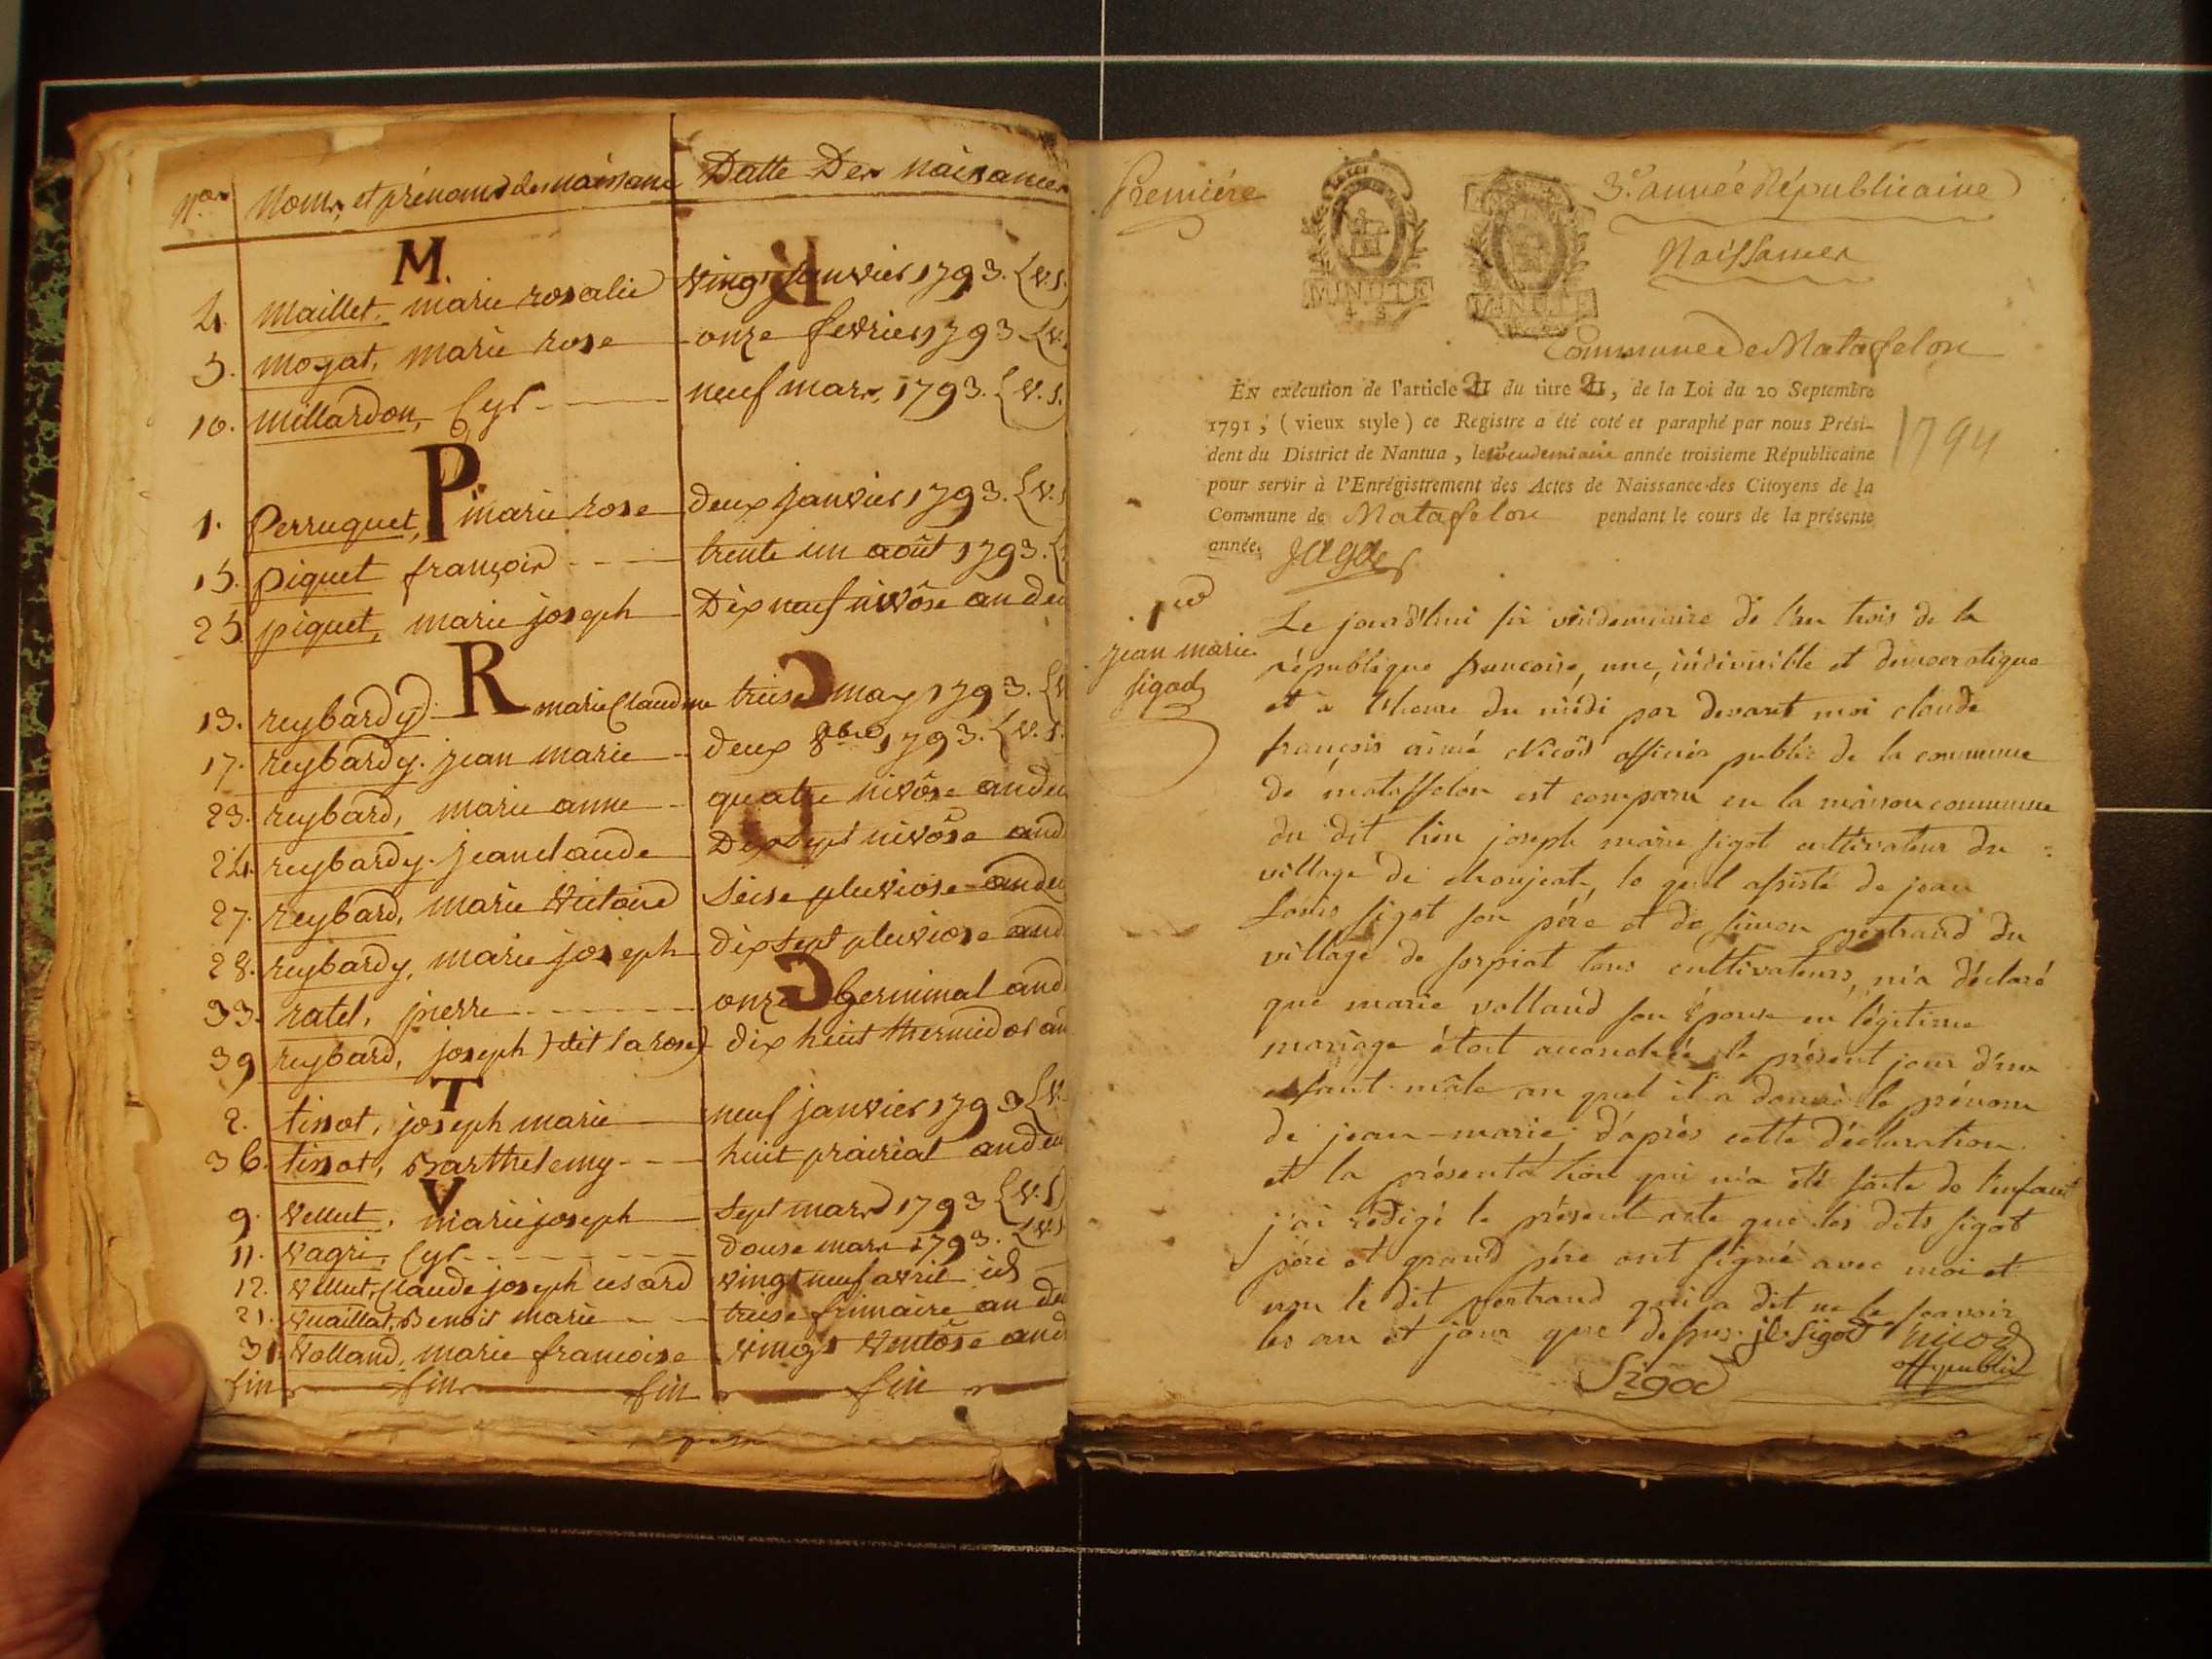 Nos Noms, et prénoms des naissanc Datte Des naisances
M.
4. maillet, marie rosalie vingt janvier 1793. (v.s.
5. moyat, marie rose onze fevrier 1793 (v.
10. millardon, Cyr neuf mars, 1793. (v.s.
P.
1. Perruquet, marie rose deux janvier 1793. (v.s
15. piquet françois trente un août 1793. (
25. piquet, marie joseph Dix neuf nivôse an deu
R
13. reybardy marie Claudine treise may 1793. (v
17. reybardy. jean marie deux 8bre 1793. (v.s.
23. reybard, marie anne quatre nivôse an deu
24. reybardy. jean claude Dix sept nivôse an d
27. reybard, marie victoire seise pluviose an deu
28. reybardy, marie joseph dix sept pluviose an d
33. ratel, pierre onze Germinal an d
39 reybard, joseph (dit la rose) dix huit thermidor an
T
2. tissot, joseph marie neuf janvier 1793 (v.
36. tissot, Barthelemy huit prairial an deu
V
9. vellut, marie joseph sept mars 1793 (v.s)
11. vagri, Cyr douse mars 1793. (v.s
12. vellut, Claude joseph cesard vingt neuf avril id
21. vuaillat, Benoit marie treise frimaire an de
31. volland, marie francoise vingt ventôse an d
fin fin fin fin
Premiére
3e. année Républicaine
Naissances
MINUTE
4 S
MINUTE
Commune de Matafelon
EN exécution de l'article II du titre II, de la Loi du 20 Septembre
1791, (vieux style) ce Registre a été coté et paraphé par nous Prési-
dent du District de Nantua, le vendemiaire année troisieme Républicaine
pour servir à l'Enrégistrement des Actes de Naissance des Citoyens de la
Commune de Matafelon pendant le cours de la présente
année.
1794
1er
jean marie
sigod
Le jourd'hui six vendemiaire de l'an trois de la
république francoise, une, indivisible et democratique
et a l'heure du midi par devant moi claude
françois aimé Nicod officier public de la commune
de mataffelon est comparu en la maison commune
du dit lieu joseph marie sigot cultivateur du
village de chonjeat, le quel assisté de jean
louis sigot son pére et de simon gertraud du
village de corpiat tous cultivateurs, m'a déclaré
que marie volland son épouse en légitime
mariage étoit accouchée le présent jour d'un
enfant mâle au quel il a donné le prénom
de jean-marie; d'après cette déclaration
et la présentation qui m'a été faite de l'enfant
j'ai rédigé le présent acte que les dits sigot
pére et grand pére ont signé avec moi et
non le dit gertraud qui a dit ne le scavoir
les an et jour que dessus. jl sigod nicod
Sigod off public